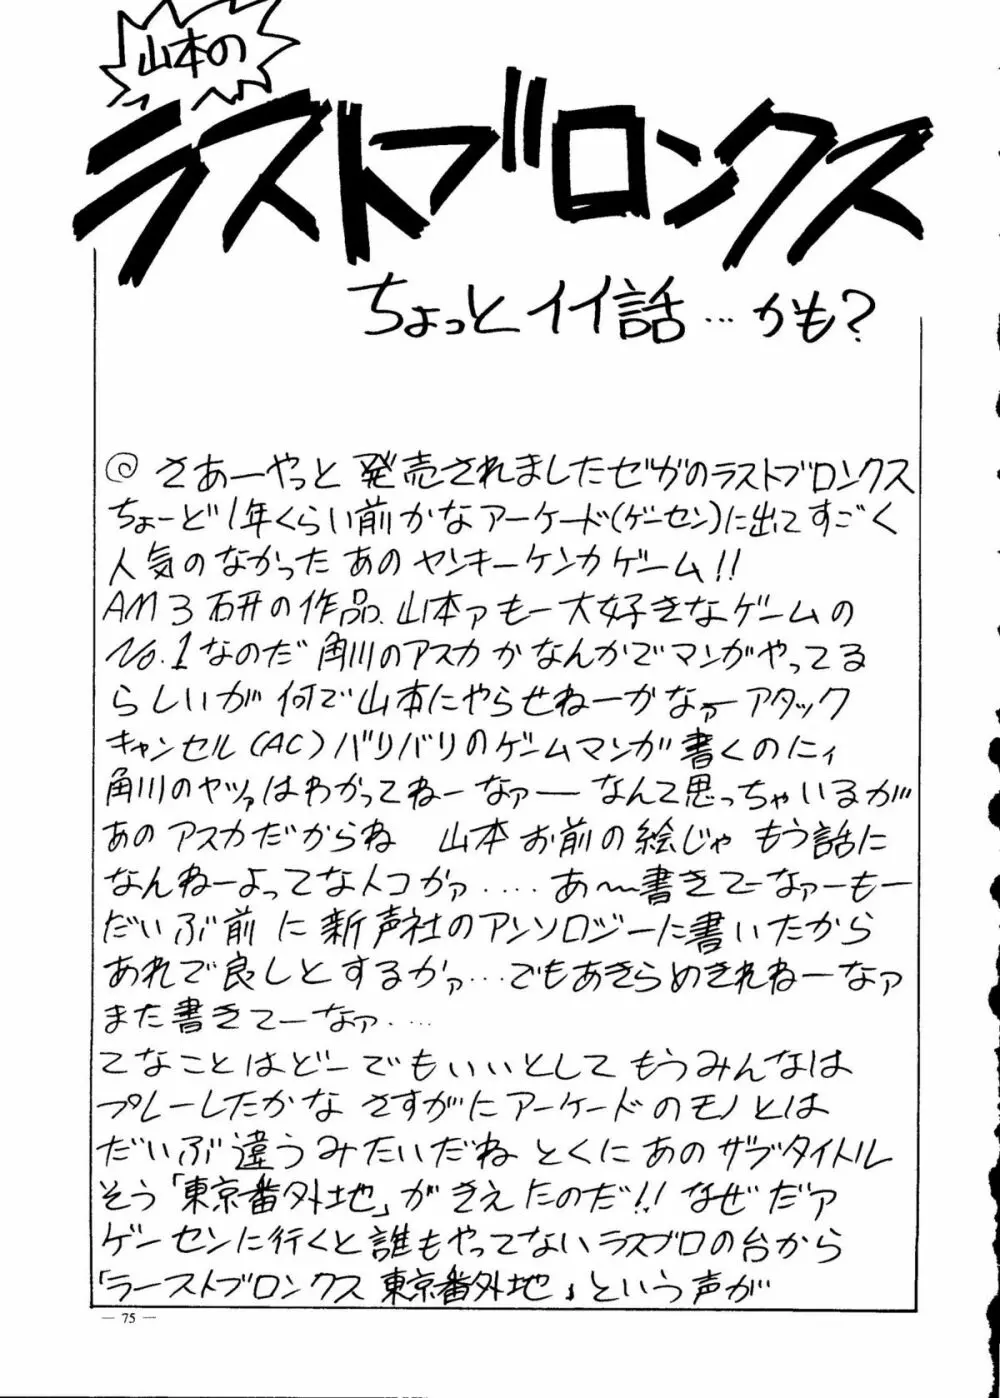 山本の
ラストブロンクス
ちょっとイイ話…かも?
◎さあーやっと発売されましたセガのラストブロンクス
ちょーど1年くらい前かなアーケード(ゲーセン)に出てすごく
人気のなかったあのヤンキーケンカゲーム!!
AM3研の作品、山本ァもー大好きなゲームの
No.1なのだ角川のアスカかなんかでマンガやってる
らしいが何で山本にやらせねーかなァーアタック
キャンセル(AC)バリバリのゲームマンガ書くのにィ
角川のヤツァはわかってねーなァーなんて思っちゃいるが
あのアスカだからね 山本お前の絵じゃもう話に
なんねーよってなトコかァ‥‥あ〜書きてーなァーもー
だいぶ前に新声社のアンソロジーに書いたから
あれで良しとするかァ…でもあきらめきれねーなァ
また書きてーなァ‥‥
てなことはどーでもいいとしてもうみんなは
プレーしたかな さすがにアーケードのモノとは
だいぶ違うみたいだね とくにあのサブタイトル
そう「東京番外地」がきえたのだ!!なぜだァ
ゲーセンに行くと誰もやってないラスブロの台から
「ラーストブロンクス 東京番外地」という声が
— 75 —